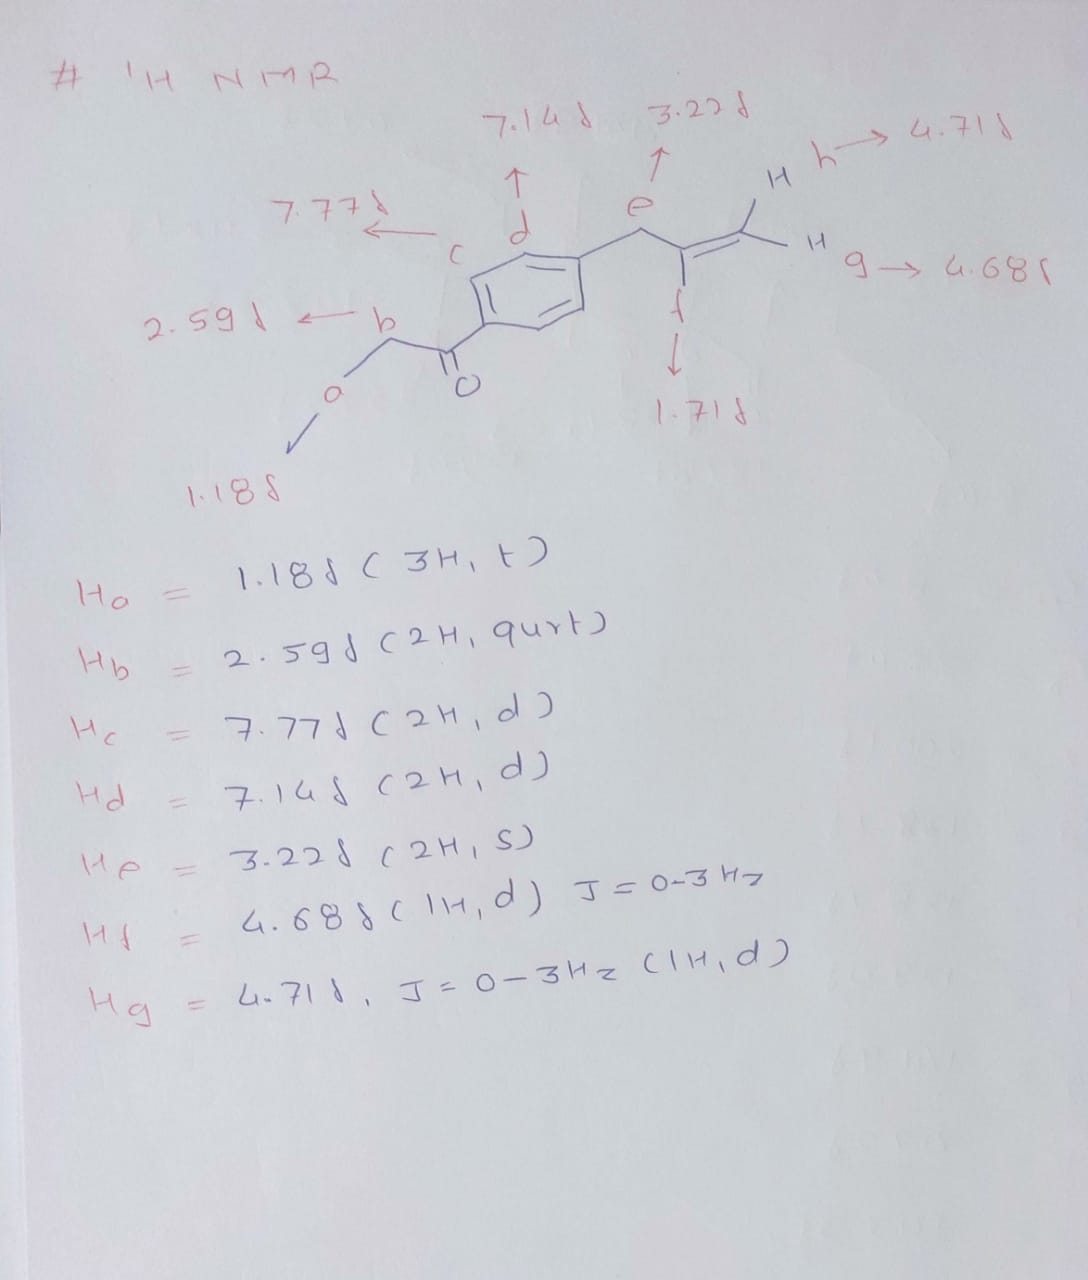 # ¹H NMR
7.14 δ
3.22 δ
h → 4.71 δ
H
e
7.77 δ
d
c
H
g → 4.68 δ
2.59 δ ← b
f
O
a
1.71 δ
1.18 δ
Ha = 1.18 δ (3H, t)
Hb = 2.59 δ (2H, qurt)
Hc = 7.77 δ (2H, d)
Hd = 7.14 δ (2H, d)
He = 3.22 δ (2H, s)
Hf = 4.68 δ (1H, d) J = 0-3 Hz
Hg = 4.71 δ, J = 0-3 Hz (1H, d)